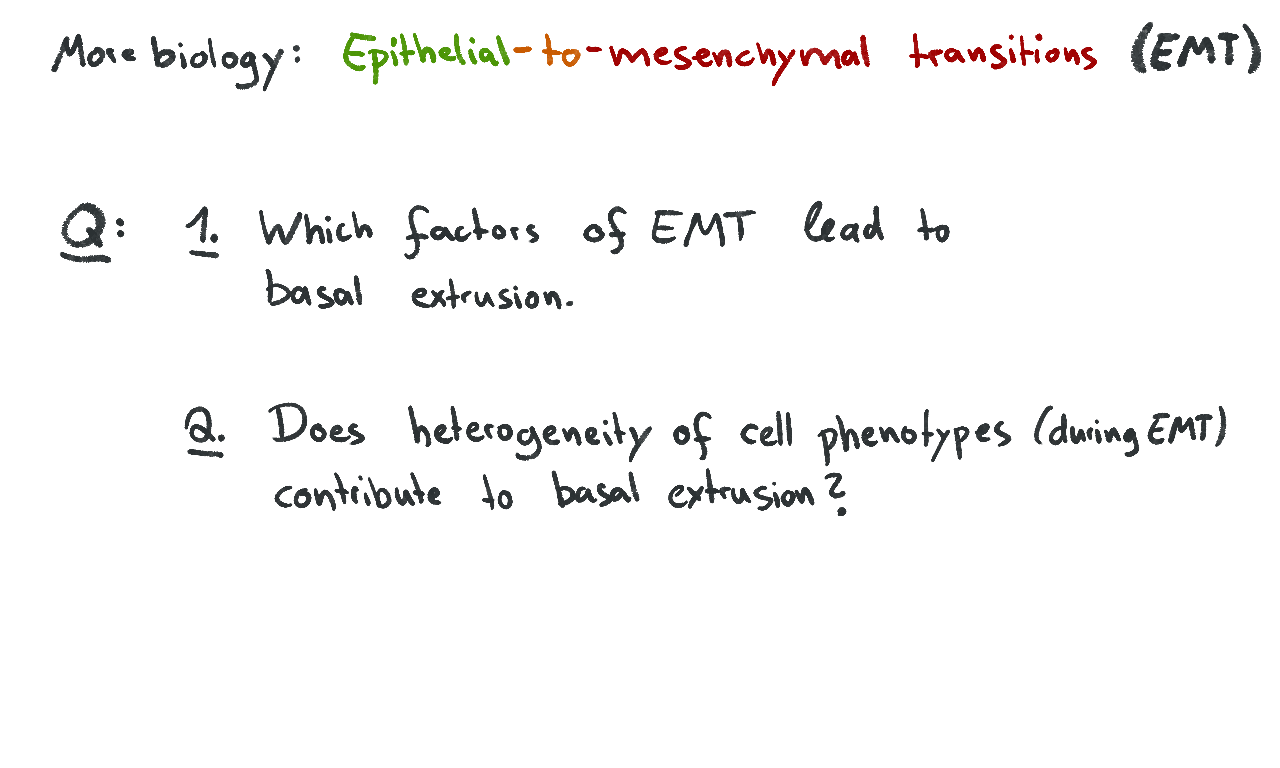 More biology: Epithelial-to-mesenchymal transitions (EMT)
Q: 1. Which factors of EMT lead to
basal extrusion.
2. Does heterogeneity of cell phenotypes (during EMT)
contribute to basal extrusion?